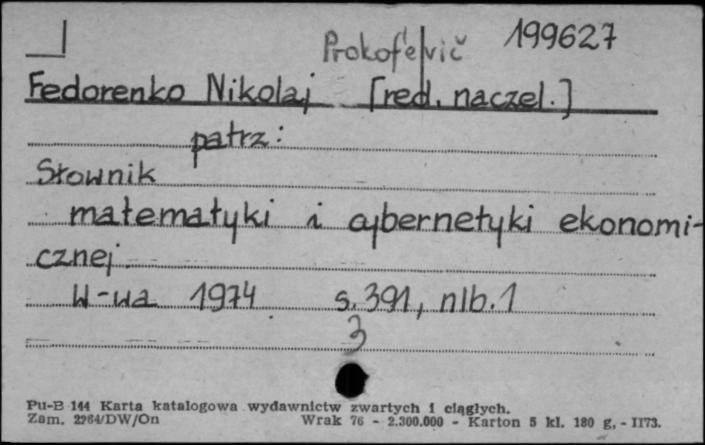 Prokof'evič 199627
Fedorenko Nikolaj [red. naczel.]
patrz:
Słownik
matematyki i cybernetyki ekonomi-
cznej
W-wa 1974 s. 391, nlb. 1
3
Pu-B 144 Karta katalogowa wydawnictw zwartych i ciągłych.
Zam. 2264/DW/On Wrak 76 - 2.300.000 - Karton 5 kl. 180 g, - II73.